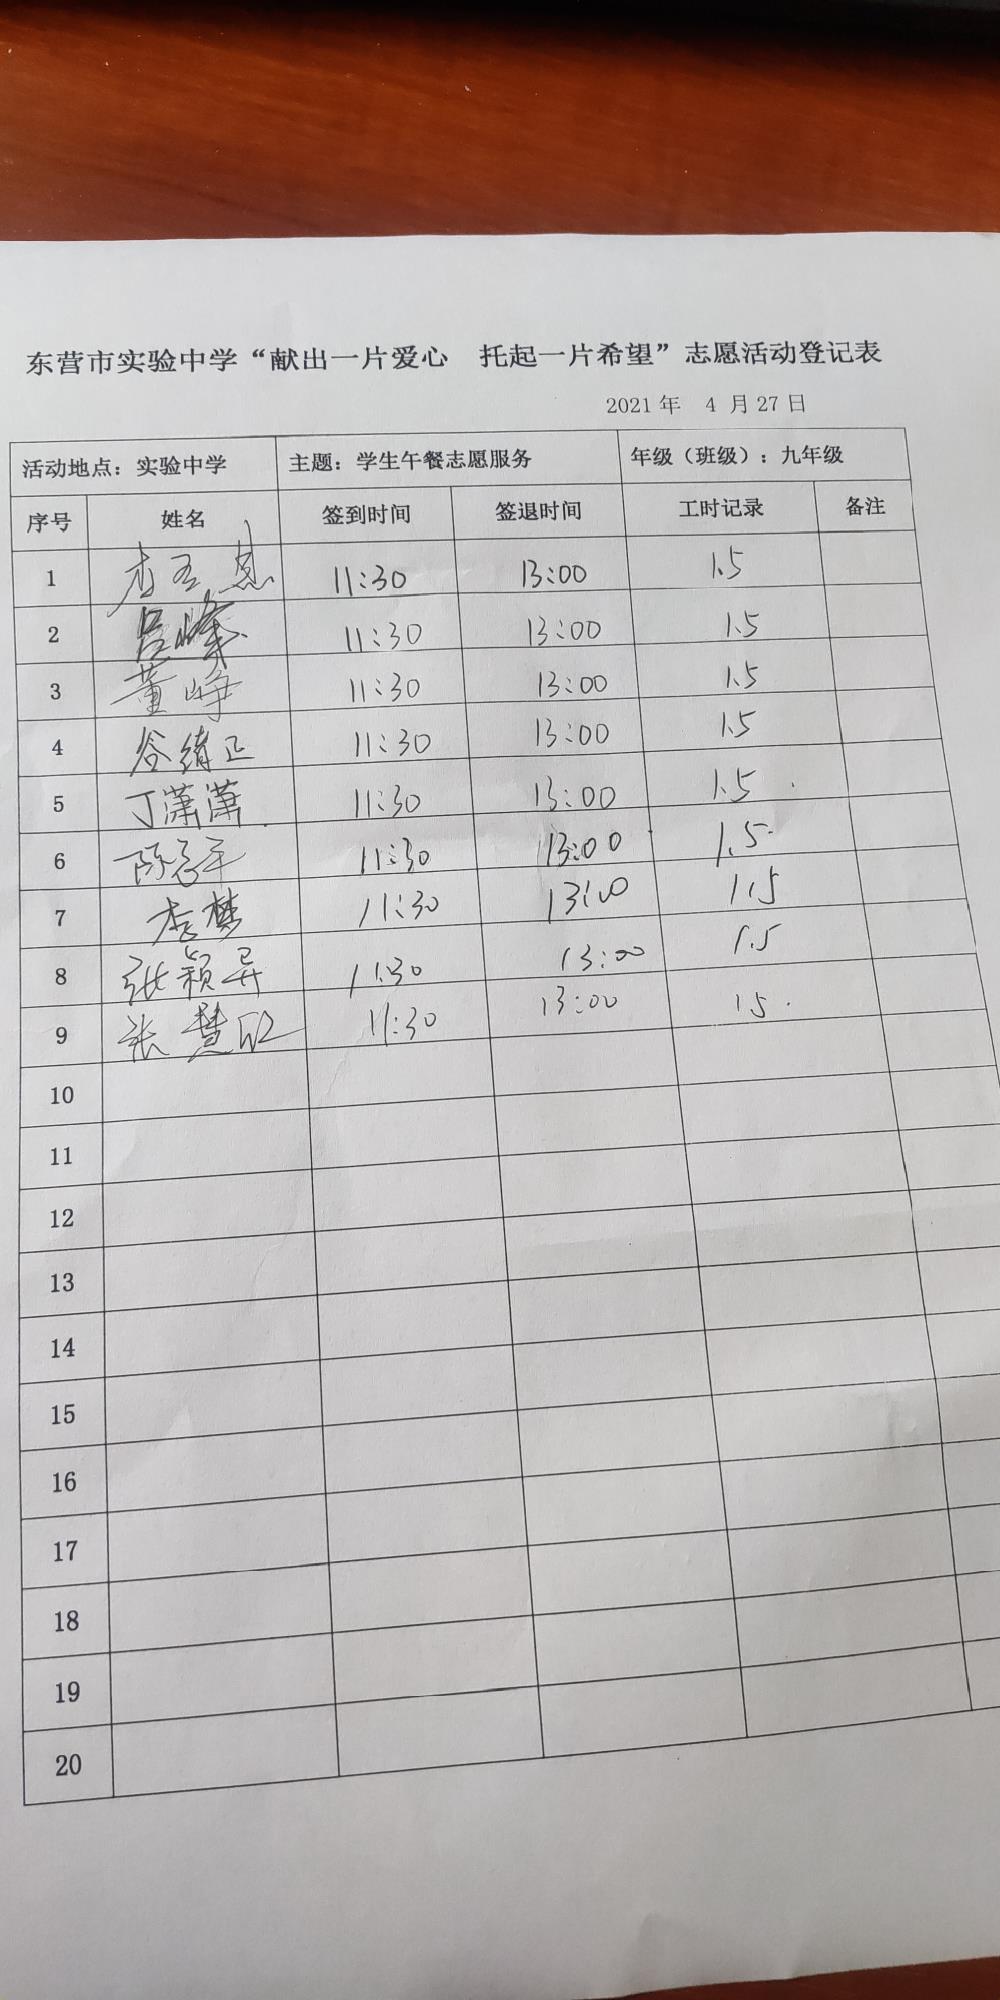 东营市实验中学“献出一片爱心　托起一片希望”志愿活动登记表
2021 年　4 月 27 日
活动地点：实验中学　主题：学生午餐志愿服务　年级（班级）：九年级
序号　姓名　签到时间　签退时间　工时记录　备注
1　11:30　13:00　1.5
2　吕峰　11:30　13:00　1.5
3　董峥　11:30　13:00　1.5
4　谷绪正　11:30　13:00　1.5
5　丁潇潇　11:30　13:00　1.5
6　11:30　13:00　1.5
7　李梦　11:30　13:00　1.5
8　张颖异　11:30　13:00　1.5
9　张慧欣　11:30　13:00　1.5
10
11
12
13
14
15
16
17
18
19
20